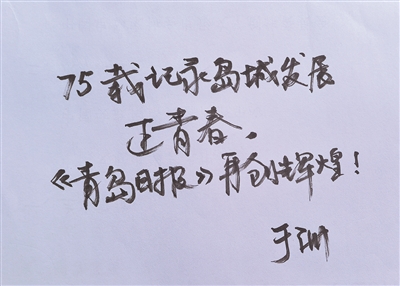 75载记录岛城发展
正青春,
《青岛日报》再创辉煌!
于洲